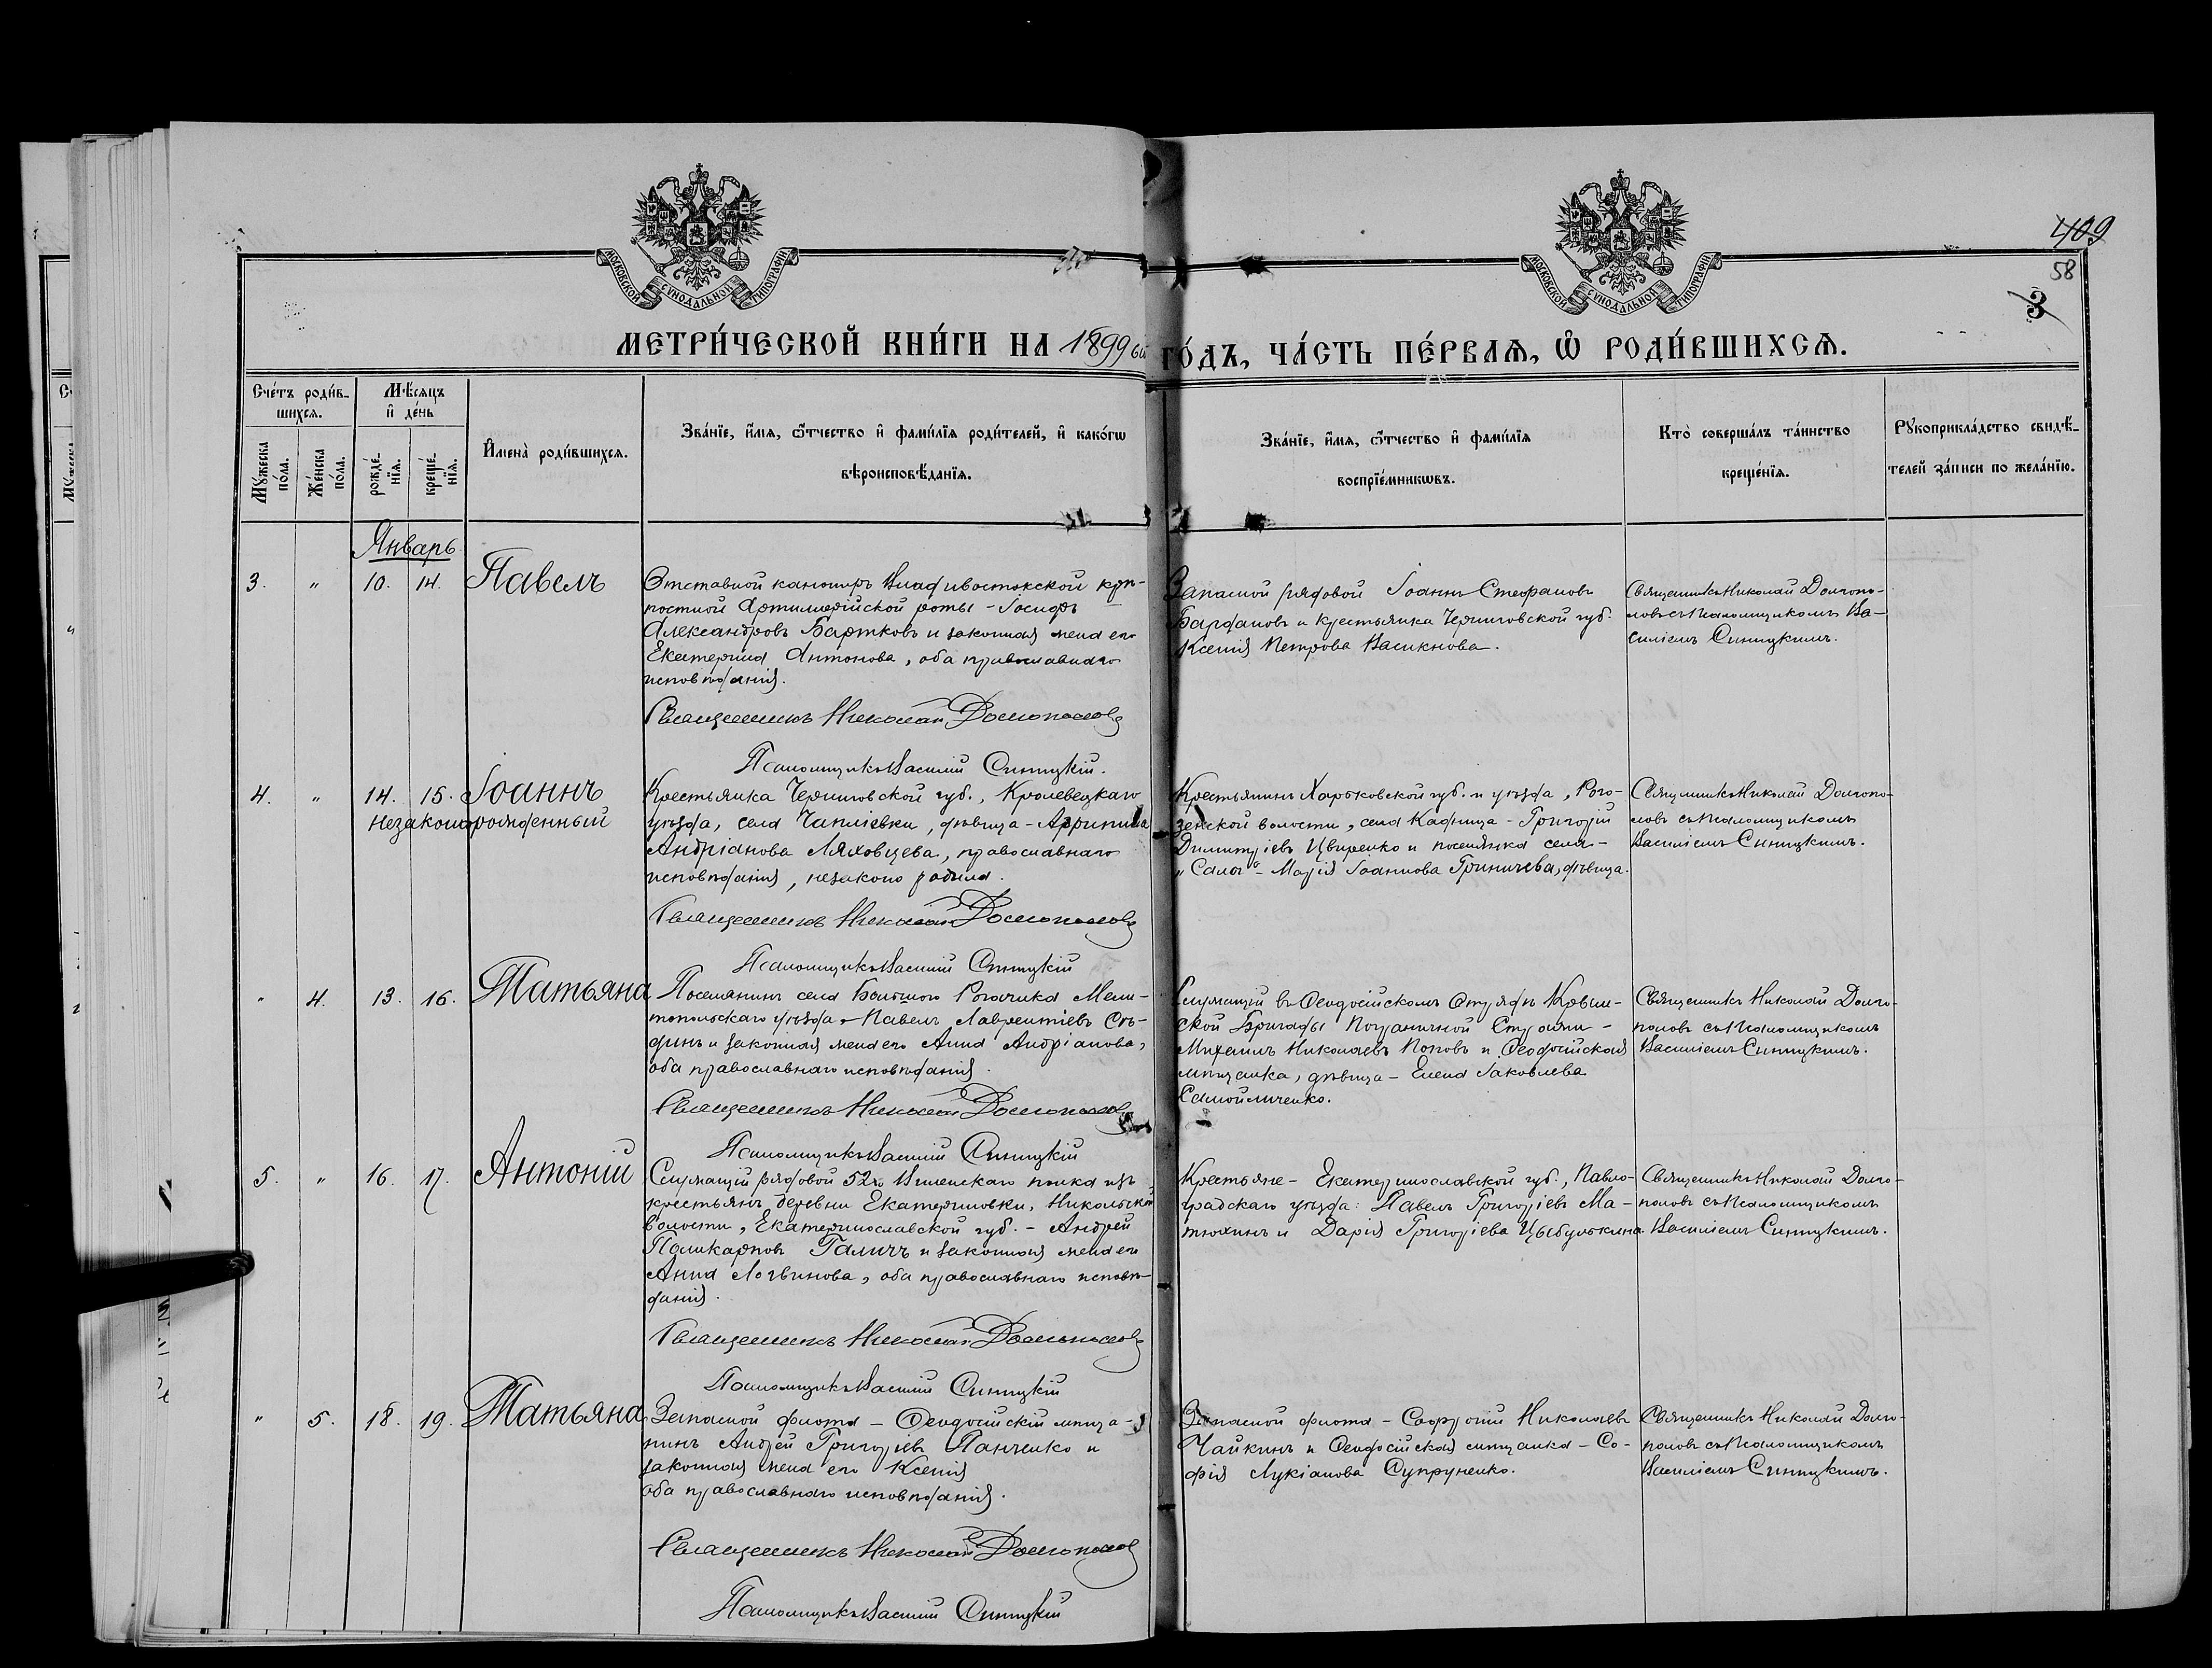 409
58
3
МОСКОВСКОЙ СУНОДАЛЬНОЙ ТИПОГРАФІИ
МОСКОВСКОЙ СУНОДАЛЬНОЙ ТИПОГРАФІИ
МЕТРИ́ЧЕСКОЙ КНИ́ГИ НА 1899 ый ГО́ДЪ, ЧА́СТЬ ПЕ́РВАѦ, Ѡ҆ РОДИ́ВШИХСѦ.
Сче́тъ роди́в-
шихсѧ.
Мꙋ́жеска по́ла.
Же́нска по́ла.
Мѣ́сѧцъ
и҆ де́нь
рожде́-
нїѧ.
креще́-
нїѧ.
И҆мена̀ роди́вшихсѧ.
Зва́нїе, и҆́мѧ, ѻ҆́тчество и҆ фами́лїѧ роди́телей, и҆ како́гѡ
вѣроисповѣ́данїѧ.
Зва́нїе, и҆́мѧ, ѻ҆́тчество и҆ фами́лїѧ
воспрїе́мникѡвъ.
Кто̀ соверша́лъ та́инство
креще́нїѧ.
Рꙋкоприкла́дство свидѣ́-
телей за́писи по жела́нїю.
Январь
3. " 10. 14. Павелъ
Отставной канониръ Владивостокской крѣ-
постной Артиллерійской роты - Іосифъ
Александровъ Бартковъ и законная жена его
Екатерина Антонова, оба православнаго
исповѣданія.
Священникъ Николай Долгополовъ
Псаломщикъ Василій Синицкій.
Запасной рядовой Іоаннъ Стефановъ
и крестьянка Черниговской губ.
Ксенія Петрова
Священникъ Николай Долгопо-
ловъ съ псаломщикомъ Ва-
силіемъ Синицкимъ.
4. " 14. 15. Іоаннъ
незаконорожденный
Крестьянка Черниговской губ., Кролевецкаго
уѣзда, села Чапліевки, дѣвица - Агрипина
Андріанова Ляховцева, православнаго
исповѣданія, незаконо родила.
Священникъ Николай Долгополовъ
Псаломщикъ Василій Синицкій
Крестьянинъ Харьковской губ. и уѣзда, Рого-
зянской волости, села - Григорій
Димитріевъ Цвиренко и поселянка села -
"Салы" - Марія Іоаннова Гриничева, дѣвица.
Священникъ Николай Долгопо-
ловъ съ псаломщикомъ
Василіемъ Синицкимъ.
" 4. 13. 16. Татьяна
Поселянинъ села Большого Рогачика Мели-
топольскаго уѣзда - Павелъ Лаврентіевъ Сѣ-
динъ и законная жена его Анна Андріанова,
оба православнаго исповѣданія.
Священникъ Николай Долгополовъ
Псаломщикъ Василій Синицкій
Служащій въ Ѳеодосійскомъ Отрядѣ Крым-
ской Бригады Пограничной Стражи -
Михаилъ Николаевъ Поповъ и Ѳеодосійская
мѣщанка, дѣвица - Елена Іаковлева
Самойличенко.
Священникъ Николай Долго-
половъ съ псаломщикомъ
Василіемъ Синицкимъ.
5. " 16. 17. Антоній
Служащій рядовой 52го Виленскаго полка изъ
крестьянъ деревни Екатериновки, Никольской
волости, Екатеринославской губ. - Андрей
Поликарповъ Галичъ и законная жена его
Анна Логвинова, оба православнаго исповѣ-
данія.
Священникъ Николай Долгополовъ
Псаломщикъ Василій Синицкій
Крестьяне - Екатеринославской губ., Павло-
градскаго уѣзда: Павелъ Григоріевъ Ма-
тюхинъ и Дарія Григоріева Цыбулькина.
Священникъ Николай Долго-
половъ съ псаломщикомъ
Василіемъ Синицкимъ.
" 5. 18. 19. Татьяна
Запасной флота - Ѳеодосійскій мѣща-
нинъ Андрей Григоріевъ Панченко и
законная жена его Ксенія
оба православнаго исповѣданія.
Священникъ Николай Долгополовъ
Псаломщикъ Василій Синицкій
Запасной флота - Николаевъ
Чайкинъ и Ѳеодосійская мѣщанка - Со-
фія Лукіанова Супруненко.
Священникъ Николай Долго-
половъ съ псаломщикомъ
Василіемъ Синицкимъ.